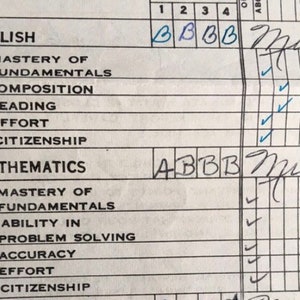 1 2 3 4
LISH B B B B
MASTERY OF
FUNDAMENTALS
COMPOSITION
READING
EFFORT
CITIZENSHIP
THEMATICS A B B B
MASTERY OF
FUNDAMENTALS
ABILITY IN
PROBLEM SOLVING
ACCURACY
EFFORT
CITIZENSHIP